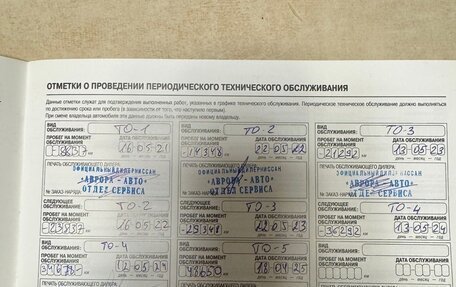 ОТМЕТКИ О ПРОВЕДЕНИИ ПЕРИОДИЧЕСКОГО ТЕХНИЧЕСКОГО ОБСЛУЖИВАНИЯ
Данные отметки служат для подтверждения выполненных работ, указанных в графике технического обслуживания. Периодическое техническое обслуживание должно выполняться
по достижению срока или пробега (в зависимости от того, что наступило первым).
При смене владельца автомобиля эти данные должны быть переданы новому владельцу.
ВИД ОБСЛУЖИВАНИЯ: ТО-1
ПРОБЕГ НА МОМЕНТ ОБСЛУЖИВАНИЯ ДАТА ОБСЛУЖИВАНИЯ
16 05 21
ПЕЧАТЬ ОБСЛУЖИВАЮЩЕГО ДИЛЕРА
ОФИЦИАЛЬНЫЙ ДИЛЕР НИССАН
"АВРОРА-АВТО"
№ ЗАКАЗ-НАРЯДА ОТДЕЛ СЕРВИСА
СЛЕДУЮЩЕЕ ОБСЛУЖИВАНИЕ: ТО-2
ПРОБЕГ НА МОМЕНТ ОБСЛУЖИВАНИЯ ДАТА ОБСЛУЖИВАНИЯ
16 05 22
ВИД ОБСЛУЖИВАНИЯ: ТО-4
ПРОБЕГ НА МОМЕНТ ОБСЛУЖИВАНИЯ ДАТА ОБСЛУЖИВАНИЯ
12 05 24
ВИД ОБСЛУЖИВАНИЯ: ТО-2
ПРОБЕГ НА МОМЕНТ ОБСЛУЖИВАНИЯ ДАТА ОБСЛУЖИВАНИЯ
14348 км 22 05 22
ПЕЧАТЬ ОБСЛУЖИВАЮЩЕГО ДИЛЕРА
ОФИЦИАЛЬНЫЙ ДИЛЕР НИССАН
"АВРОРА-АВТО"
№ ЗАКАЗ-НАРЯДА ОТДЕЛ СЕРВИСА
СЛЕДУЮЩЕЕ ОБСЛУЖИВАНИЕ: ТО-3
ПРОБЕГ НА МОМЕНТ ОБСЛУЖИВАНИЯ ДАТА ОБСЛУЖИВАНИЯ
29348 км 22 05 23
ВИД ОБСЛУЖИВАНИЯ: ТО-5
ПРОБЕГ НА МОМЕНТ ОБСЛУЖИВАНИЯ ДАТА ОБСЛУЖИВАНИЯ
18 04 25
ВИД ОБСЛУЖИВАНИЯ: ТО-3
ПРОБЕГ НА МОМЕНТ ОБСЛУЖИВАНИЯ ДАТА ОБСЛУЖИВАНИЯ
21292 км 13 05 23
ПЕЧАТЬ ОБСЛУЖИВАЮЩЕГО ДИЛЕРА
ОФИЦИАЛЬНЫЙ ДИЛЕР НИССАН
"АВРОРА-АВТО"
№ ЗАКАЗ-НАРЯДА ОТДЕЛ СЕРВИСА
СЛЕДУЮЩЕЕ ОБСЛУЖИВАНИЕ: ТО-4
ПРОБЕГ НА МОМЕНТ ОБСЛУЖИВАНИЯ ДАТА ОБСЛУЖИВАНИЯ
36292 км 13 05 24
ВИД ОБСЛУЖИВАНИЯ:
ПРОБЕГ НА МОМЕНТ ОБСЛУЖИВАНИЯ ДАТА ОБСЛУЖИВАНИЯ